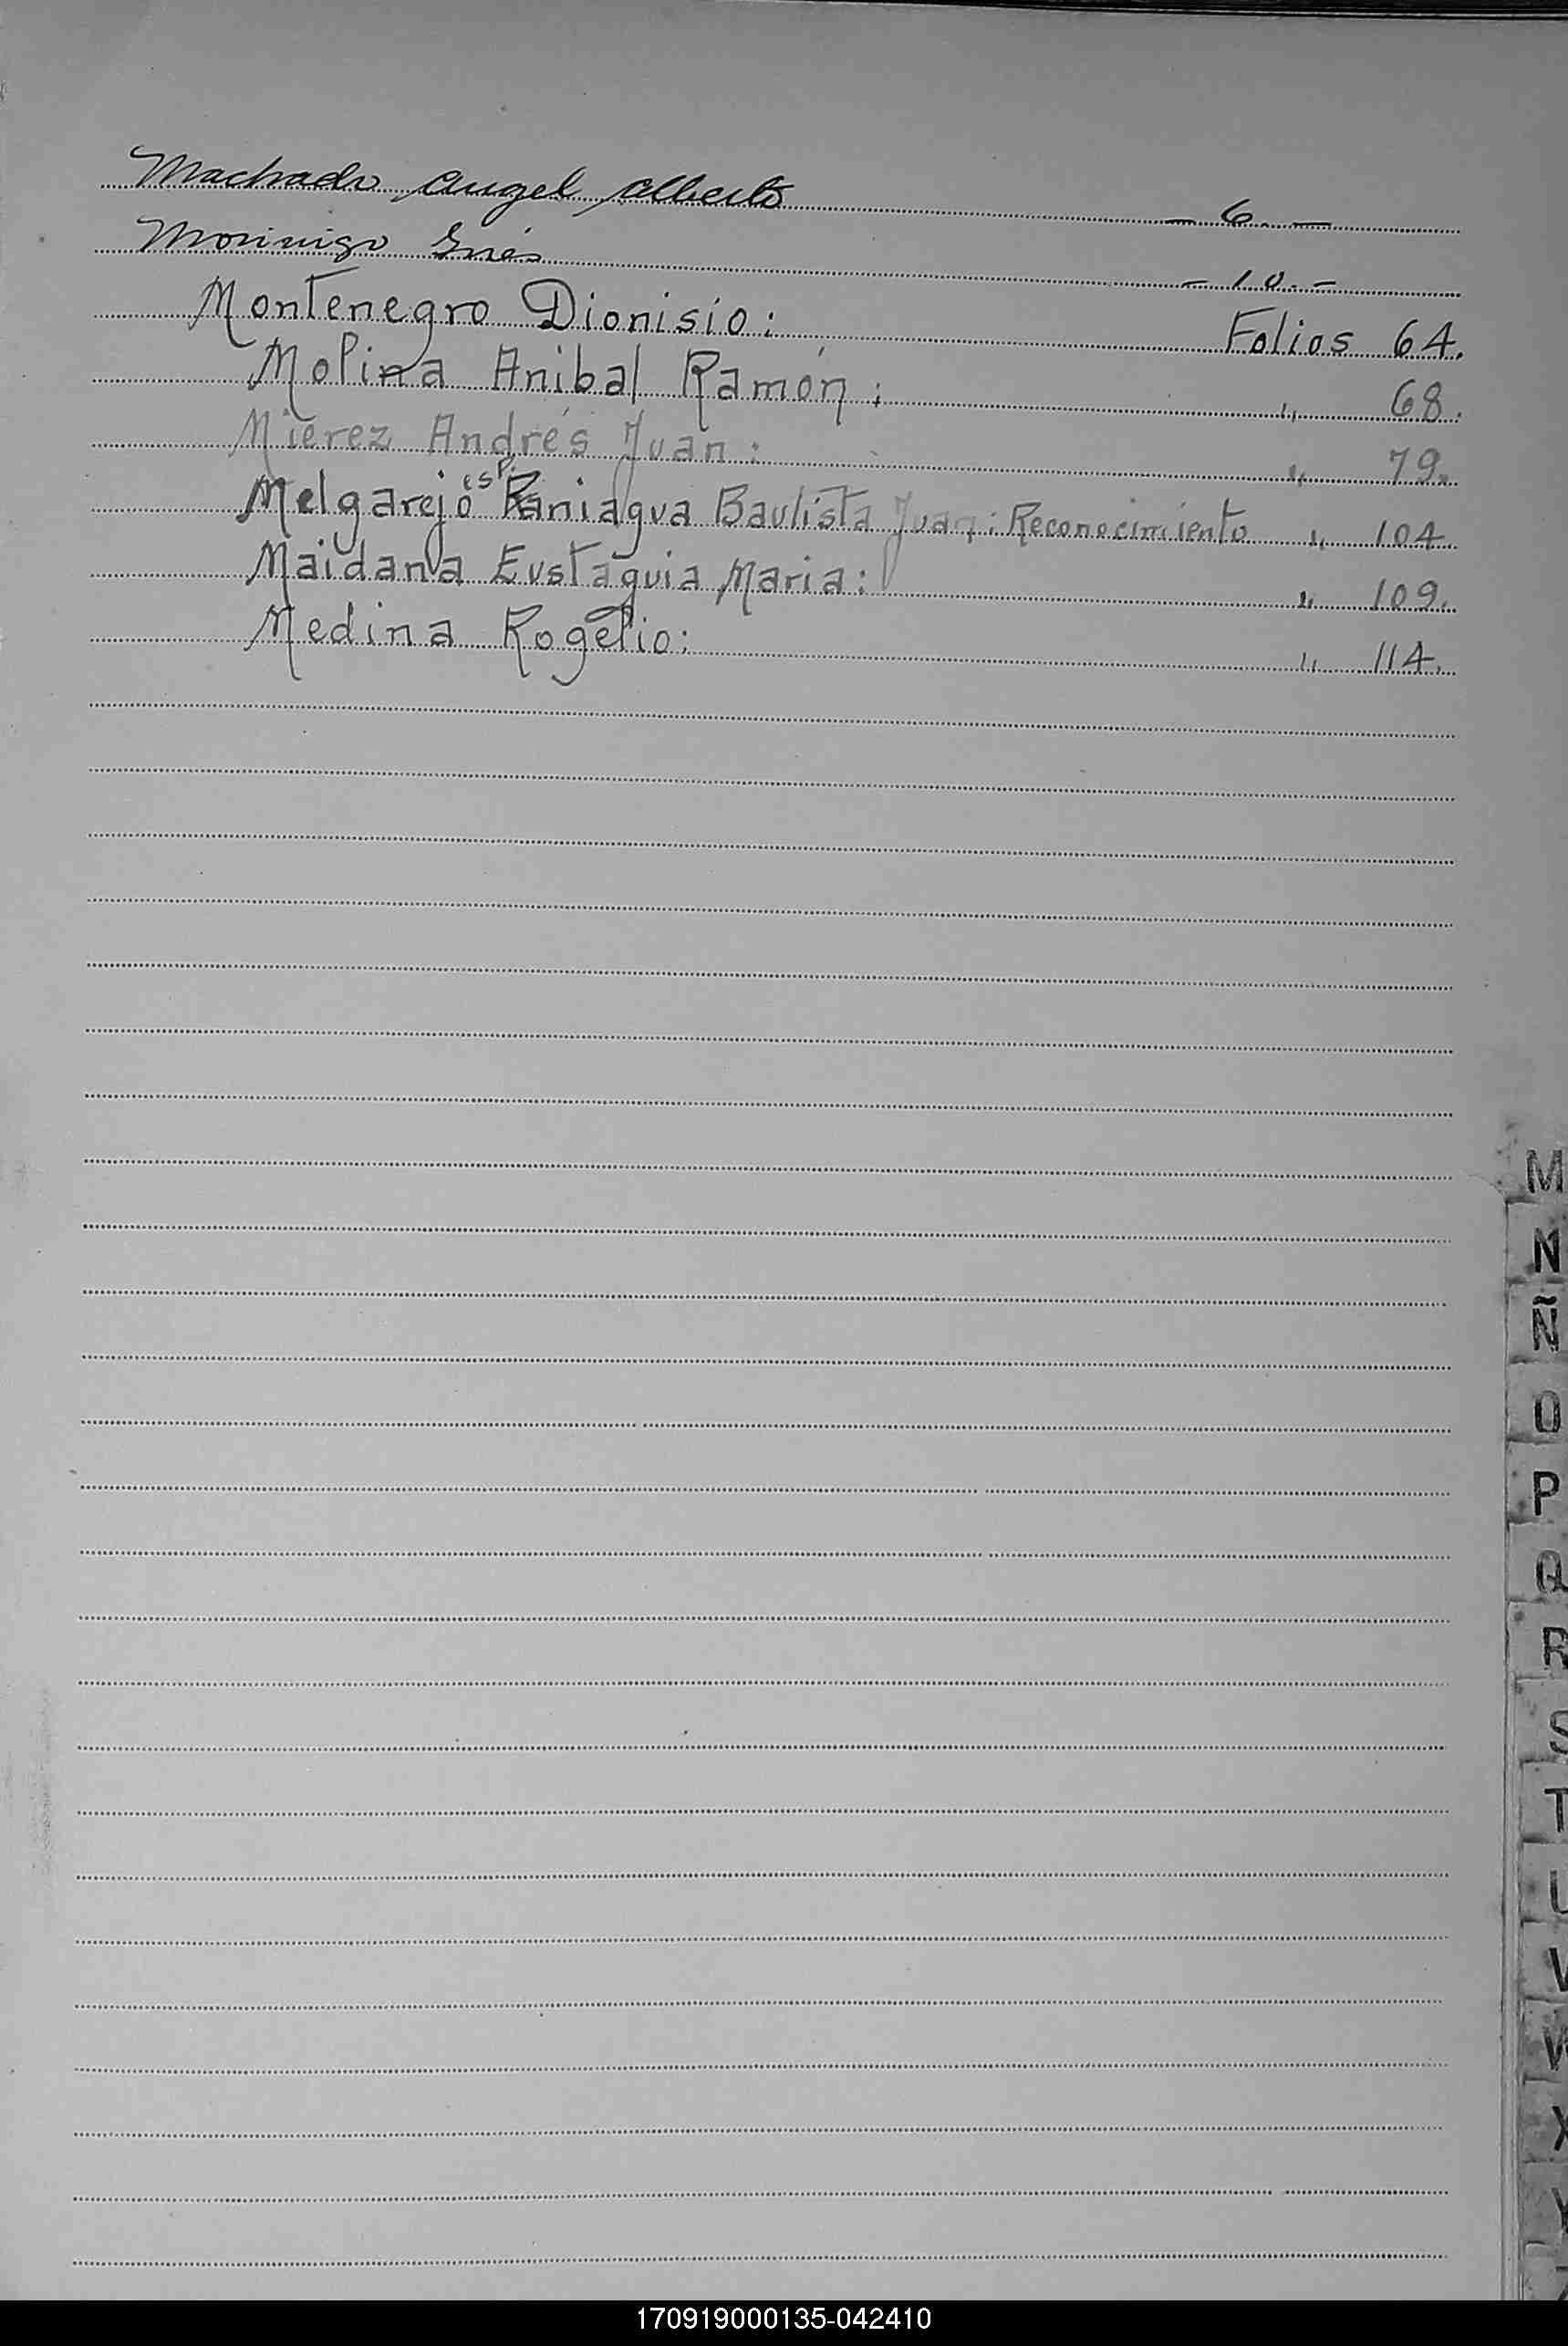 Machado Angel Alberto — 6. —
Morinigo Inés — 10. —
Montenegro Dionisio: Folios 64.
Molina Anibal Ramón: " 68.
Mierez Andrés Juan: " 79.
Melgarejo esp. Paniagua Bautista Juan: Reconocimiento " 104.
Maidana Eustaquia Maria: " 109.
Medina Rogelio: " 114.
M
N
Ñ
O
P
Q
R
S
T
U
V
W
X
Y
Z
170919000135-042410